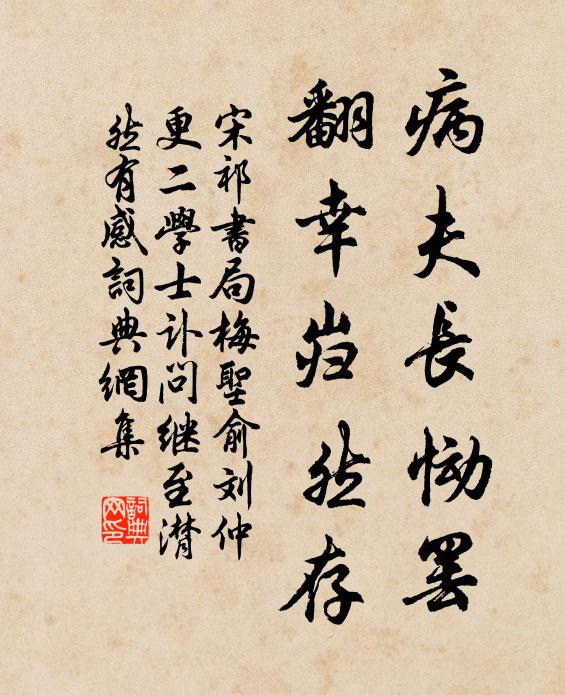 病夫長恸罢
翻幸岿然存
宋祁書局梅聖俞刘仲
更二學士訃問继至潸
然有感詞典網集
詞典网印